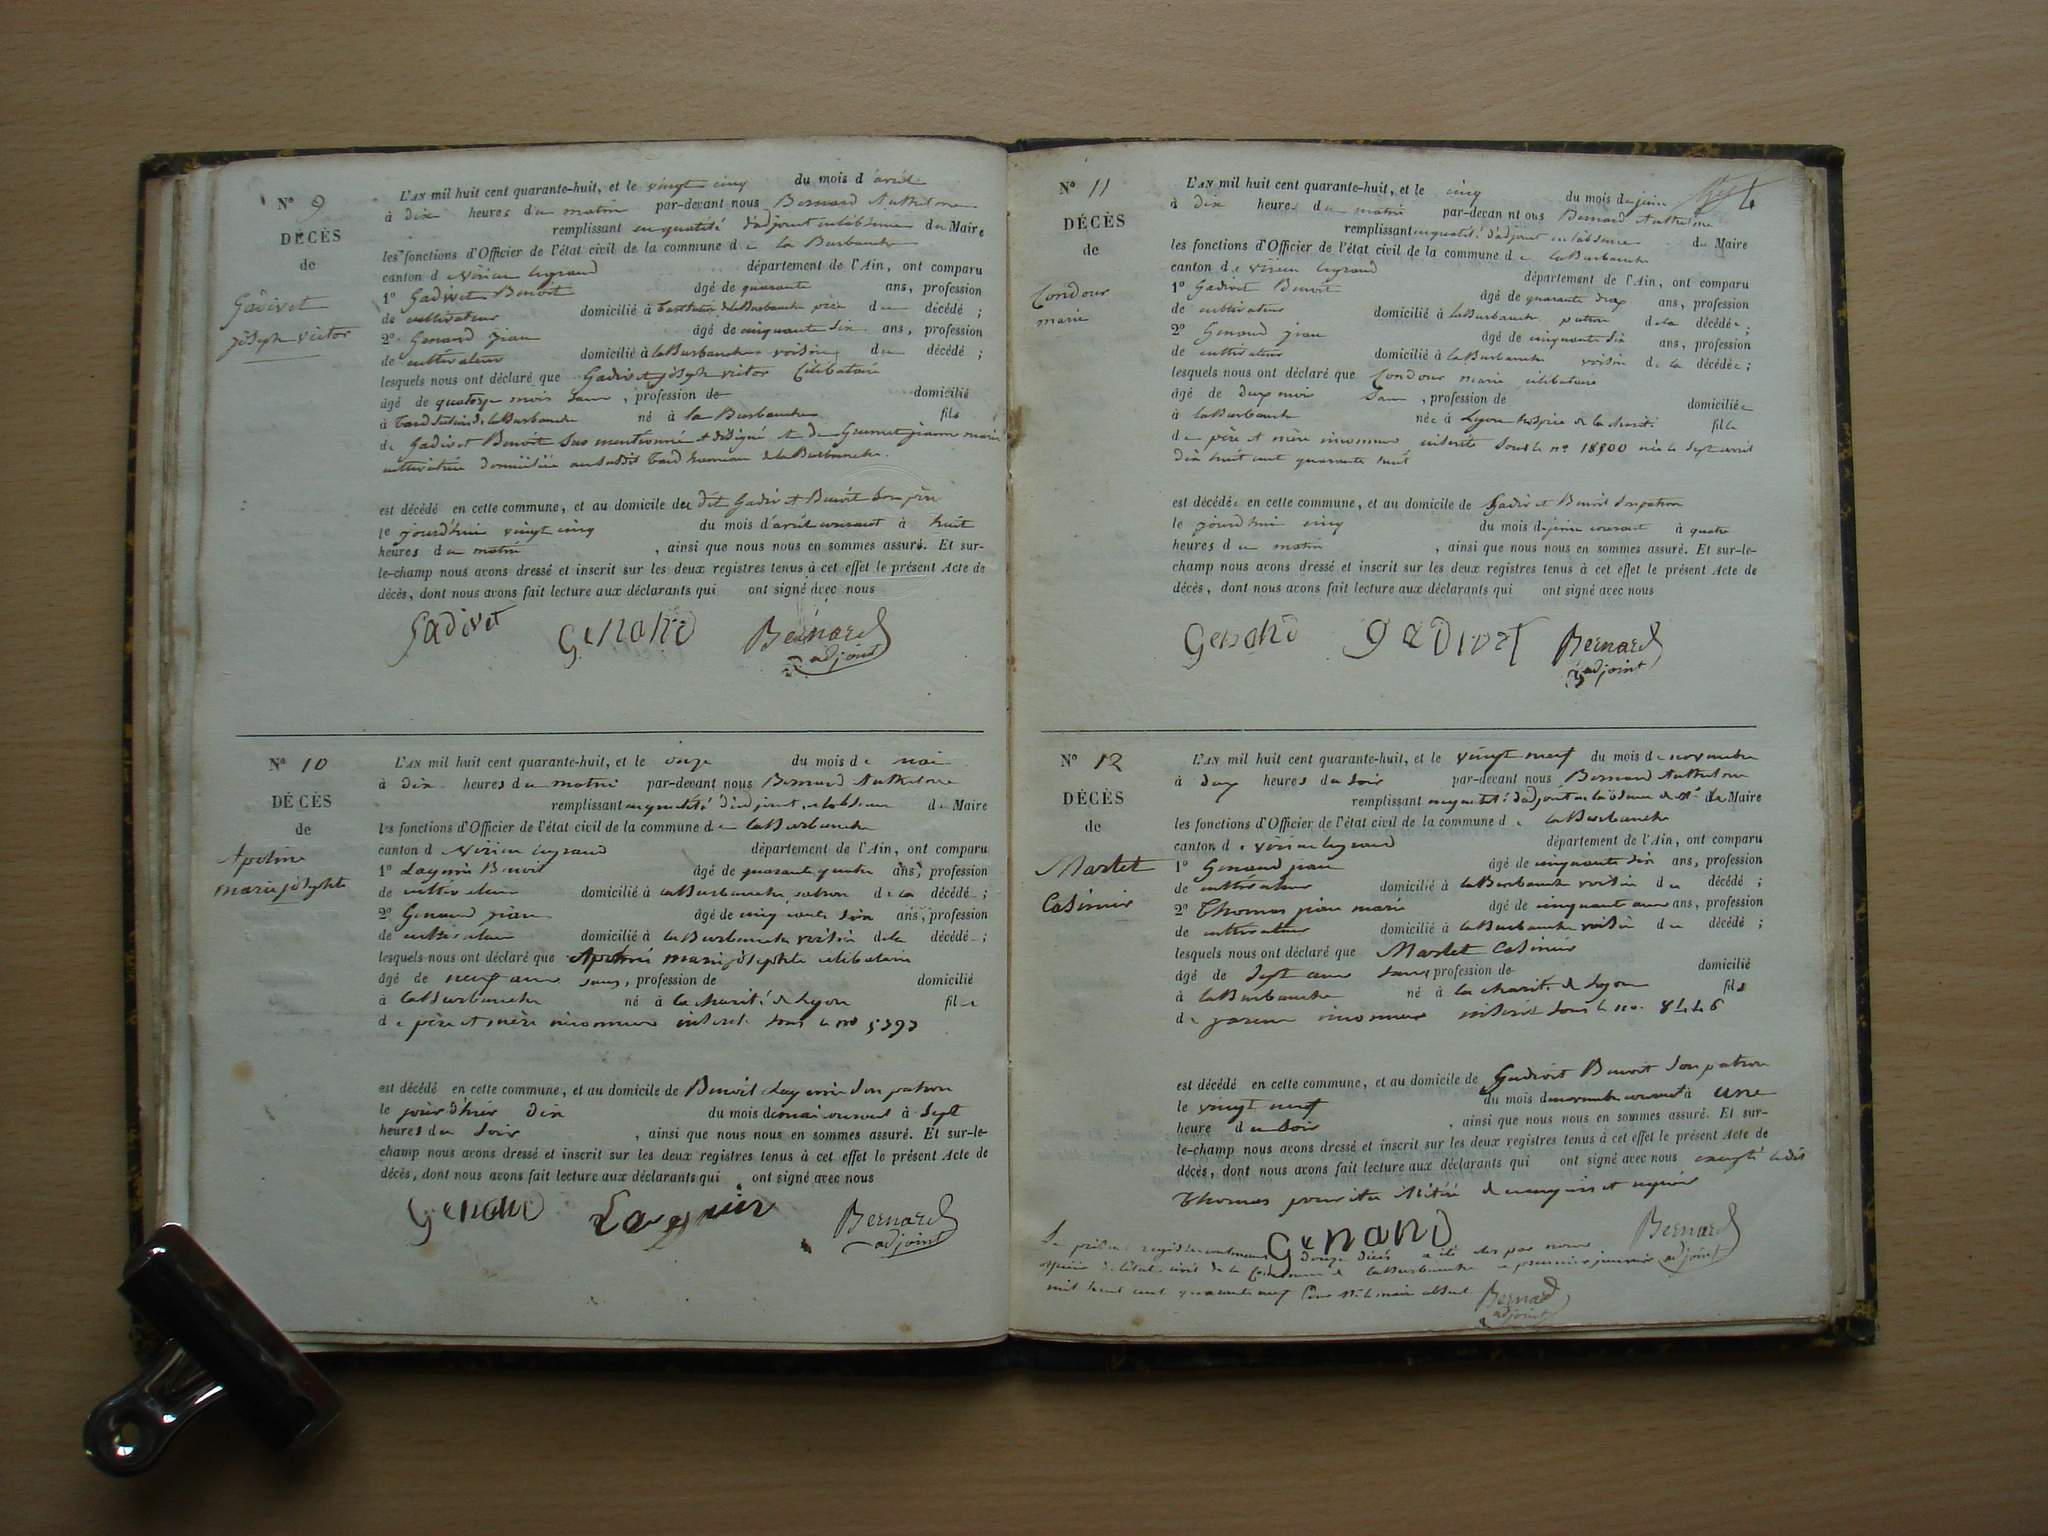 N° 9
DÉCÈS
de
Gadivet
joseph victor
L'AN mil huit cent quarante-huit, et le vingt cinq du mois d'avril
à dix heures du matin par-devant nous Bernard Anthelme
remplissant en qualité d'adjoint en l'absence du Maire
les fonctions d'Officier de l'état civil de la commune de la Burbanche
canton de virieu legrand département de l'Ain, ont comparu
1° Gadivet Benoit âgé de quarante ans, profession
de cultivateur domicilié à la Burbanche père du décédé ;
2° Genand jean âgé de cinquante six ans, profession
de cultivateur domicilié à la Burbanche voisin du décédé ;
lesquels nous ont déclaré que Gadivet joseph victor Célibataire
âgé de quatorze mois sans , profession de domicilié
à la Burbanche né à la Burbanche fils
de Gadivet Benoit sus mentionné et désigné et de Grumet jeanne marie
cultivatrice domiciliée au susdit hameau de la Burbanche.
est décédé en cette commune, et au domicile de dit Gadivet Benoit son père
le jourd'hui vingt cinq du mois d'avril courant à huit
heures du matin , ainsi que nous nous en sommes assuré. Et sur-
le-champ nous avons dressé et inscrit sur les deux registres tenus à cet effet le présent Acte de
décès, dont nous avons fait lecture aux déclarants qui ont signé avec nous
Gadivet Genand Bernard
adjoint
N° 10
DÉCÈS
de
Apolinie
marie josephte
L'AN mil huit cent quarante-huit, et le onze du mois de mai
à dix heures du matin par-devant nous Bernard Anthelme
remplissant en qualité d'adjoint en l'absence du Maire
les fonctions d'Officier de l'état civil de la commune de la Burbanche
canton de virieu legrand département de l'Ain, ont comparu
1° Laguin Benoit âgé de quarante quatre ans, profession
de cultivateur domicilié à la Burbanche patron de la décédé ;
2° Genand jean âgé de cinquante six ans, profession
de cultivateur domicilié à la Burbanche voisin de la décédé ;
lesquels nous ont déclaré que Apolinie marie josephte célibataire
âgé de neuf ans sans , profession de domicilié
à la Burbanche né à la charité de Lyon fille
de père et mère inconnus inscrite sous le n° 5393
est décédé en cette commune, et au domicile de Benoit Laguin son patron
le jour d'hier dix du mois de mai courant à sept
heures du soir , ainsi que nous nous en sommes assuré. Et sur-le-
champ nous avons dressé et inscrit sur les deux registres tenus à cet effet le présent Acte de
décès, dont nous avons fait lecture aux déclarants qui ont signé avec nous
Genand Laguin Bernard
adjoint
N° 11
DÉCÈS
de
Condour
marie
L'AN mil huit cent quarante-huit, et le cinq du mois de juin
à dix heures du matin par-devant nous Bernard Anthelme
remplissant en qualité d'adjoint en l'absence du Maire
les fonctions d'Officier de l'état civil de la commune de la Burbanche
canton de virieu legrand département de l'Ain, ont comparu
1° Gadivet Benoit âgé de quarante deux ans, profession
de cultivateur domicilié à la Burbanche patron de la décédée ;
2° Genand jean âgé de cinquante six ans, profession
de cultivateur domicilié à la Burbanche voisin de la décédée ;
lesquels nous ont déclaré que Condour marie célibataire
âgé de deux mois sans , profession de domiciliée
à la Burbanche née à Lyon hospice de la charité fille
de père et mère inconnus inscrite sous le n° 18500 née le sept avril
dix huit cent quarante huit
est décédée en cette commune, et au domicile de Gadivet Benoit son patron
le jourd'hui cinq du mois de juin courant à quatre
heures du matin , ainsi que nous nous en sommes assuré. Et sur-le-
champ nous avons dressé et inscrit sur les deux registres tenus à cet effet le présent Acte de
décès, dont nous avons fait lecture aux déclarants qui ont signé avec nous
Genand Gadivet Bernard
adjoint
N° 12
DÉCÈS
de
Martet
Casimir
L'AN mil huit cent quarante-huit, et le vingt neuf du mois de novembre
à deux heures du soir par-devant nous Bernard Anthelme
remplissant en qualité d'adjoint en l'absence de Mr le Maire
les fonctions d'Officier de l'état civil de la commune de la Burbanche
canton de virieu legrand département de l'Ain, ont comparu
1° Genand jean âgé de cinquante six ans, profession
de cultivateur domicilié à la Burbanche voisin du décédé ;
2° Thomas jean marie âgé de cinquante ans, profession
de cultivateur domicilié à la Burbanche voisin du décédé ;
lesquels nous ont déclaré que Martet Casimir
âgé de sept ans sans , profession de domicilié
à la Burbanche né à la charité de Lyon fils
de parens inconnus inscrit sous le n°
est décédé en cette commune, et au domicile de Gadivet Benoit son patron
le vingt neuf du mois de novembre courant à une
heure du soir , ainsi que nous nous en sommes assuré. Et sur-
le-champ nous avons dressé et inscrit sur les deux registres tenus à cet effet le présent Acte de
décès, dont nous avons fait lecture aux déclarants qui ont signé avec nous excepté ledit
Thomas pour être illitéré de ce enquis et requis
Genand Bernard
adjoint
Le présent registre contenant douze décès a été clos par nous
officier de l'état civil de la Commune de la Burbanche le premier janvier
mil huit cent quarante neuf Pour Mr le maire absent Bernard
adjoint